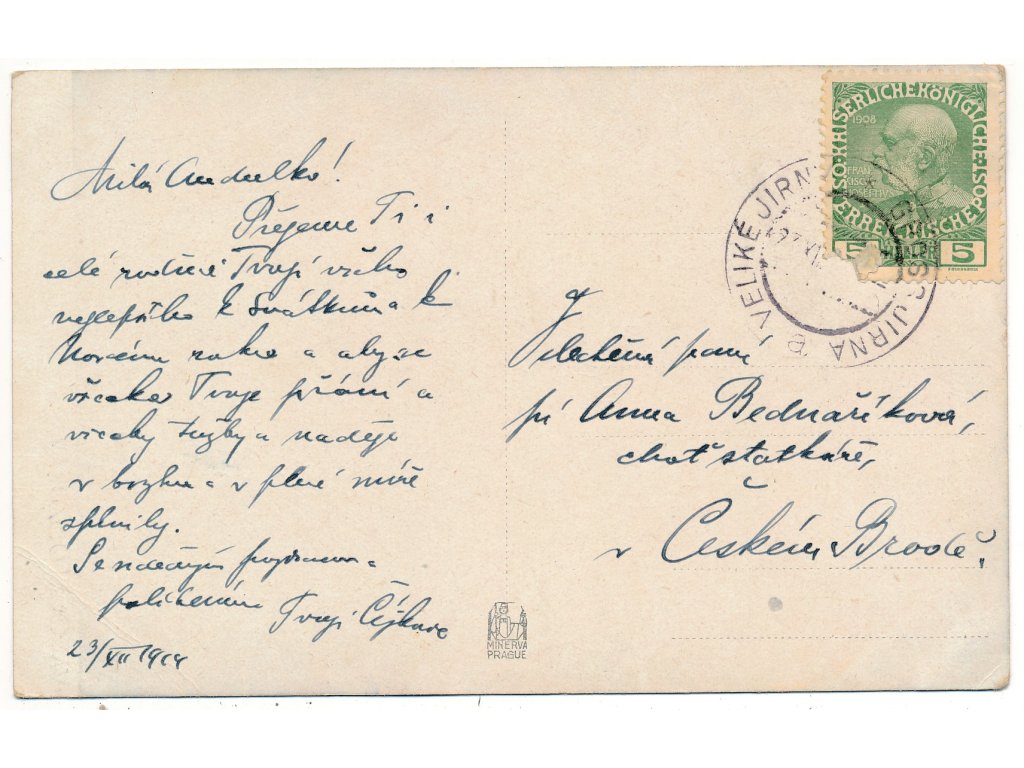 Milá Andulko!
Přejeme Ti i
celé rodině Tvojí všeho
nejlepšího k Svátkům a k
Novému roku a aby se
všecka Tvoje přání a
tužby a naděje
v brzku a v plné míře
splnily.
Se srdečným pozdravem a
políbením Tvoji
23/XII 1914
KAISERLICHE KÖNIGLICHE
1908
5 5
VELIKÉ JIRNY
JIRNA
Vzácná paní
pí Anna Bednaříková,
choť statkáře,
v Českém Brodě.
MINERVA
PRAGUE